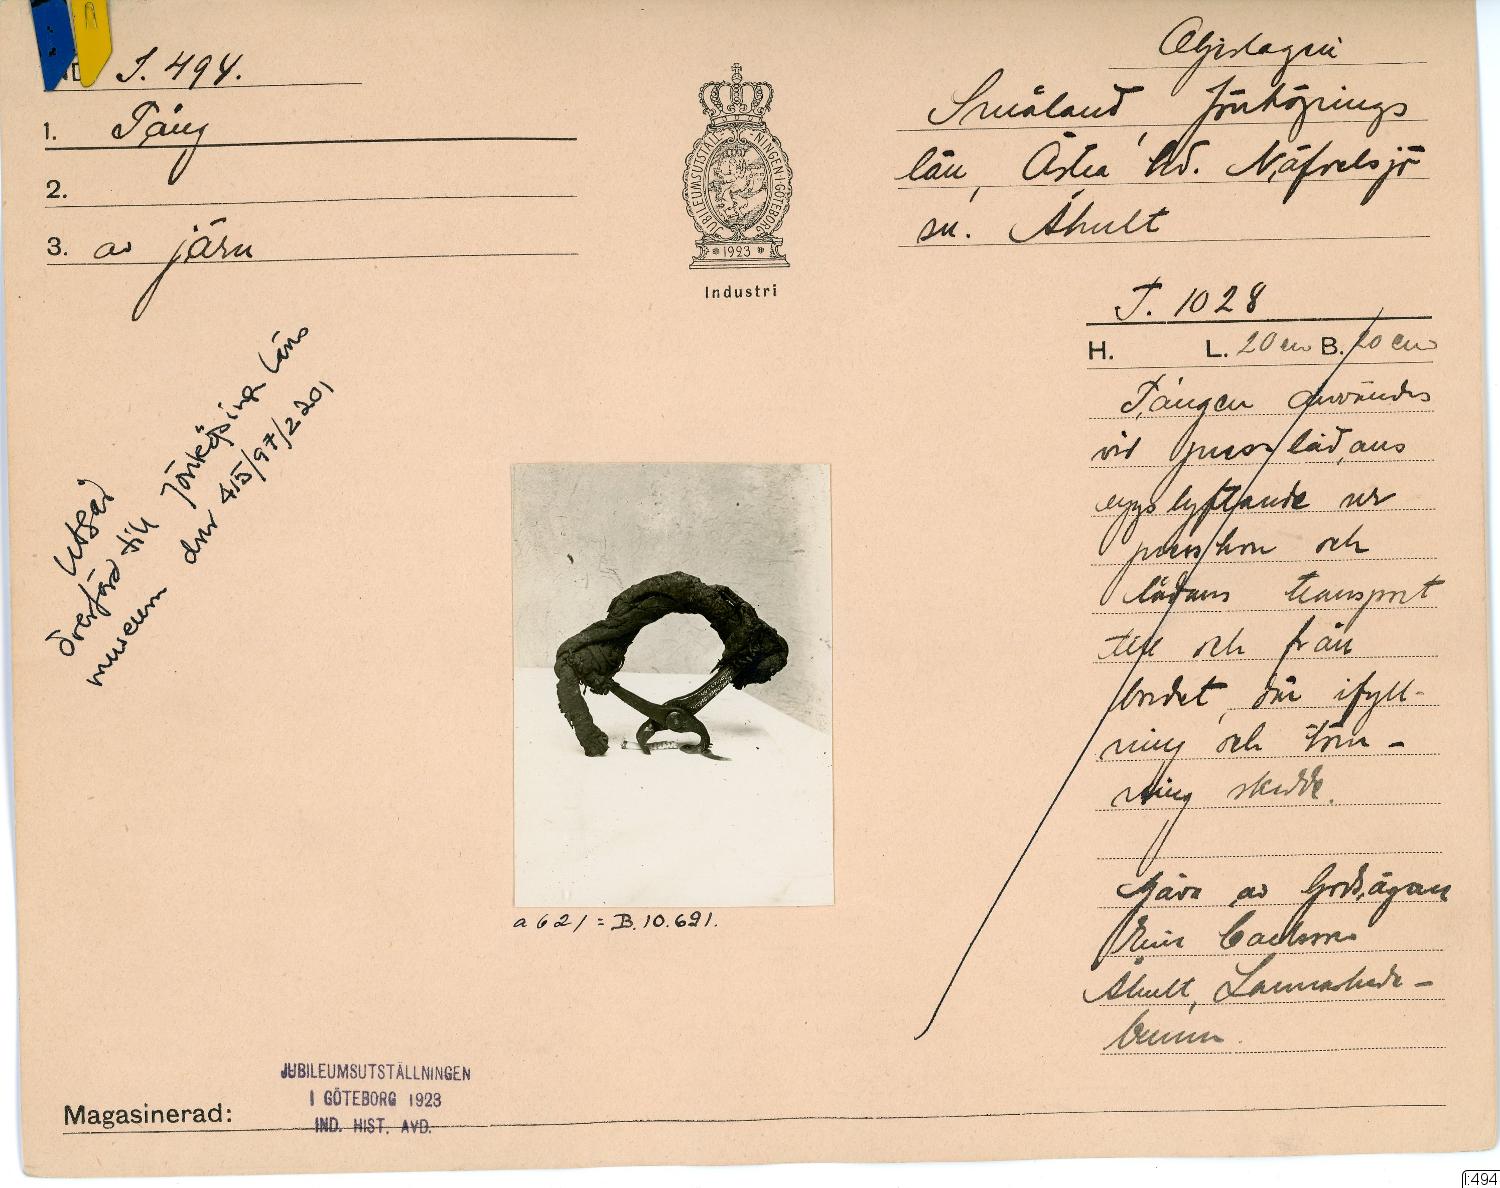 J. 494.
1. Tång
2.
3. av järn
JUBILEUMSUTSTÄLLNINGEN I GÖTEBORG
1923
Industri
Oljeslageri
Småland, Jönköpings
län, Östra hd. Näfvelsjö
sn. Åhult
T. 1028
H. L. 20 cm B. 20 cm
Tången användes
vid presslådans
upplyftande ur
presshon och
lådans transport
till och från
bordet, där ifyll-
ning och töm-
ning skedde.
Gåva av Godsägare
Carlsson
Åhult, Lannaskede-
brunn.
Utgår
överförd till Jönköpings läns
museum dnr 415/97/220,
a 621 = B. 10.691.
JUBILEUMSUTSTÄLLNINGEN
I GÖTEBORG 1923
IND. HIST. AVD.
Magasinerad:
I:494